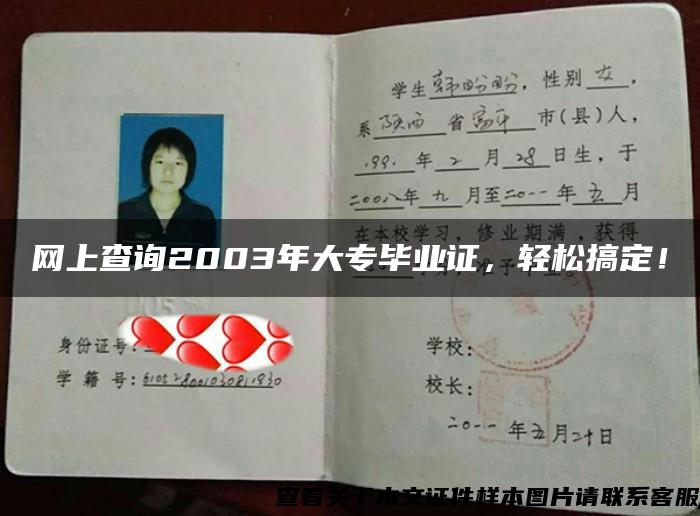 学生韩盼盼，性别女，
系陕西省富平市(县)人，
1991年2月28日生，于
二00八年九月至二0一一年五月
在本校学习，修业期满，获得
网上查询2003年大专毕业证，轻松搞定！
身份证号：
学籍号：
学校：
校长：
二0一一年五月二十日
查看关于本文证件样本图片请联系客服